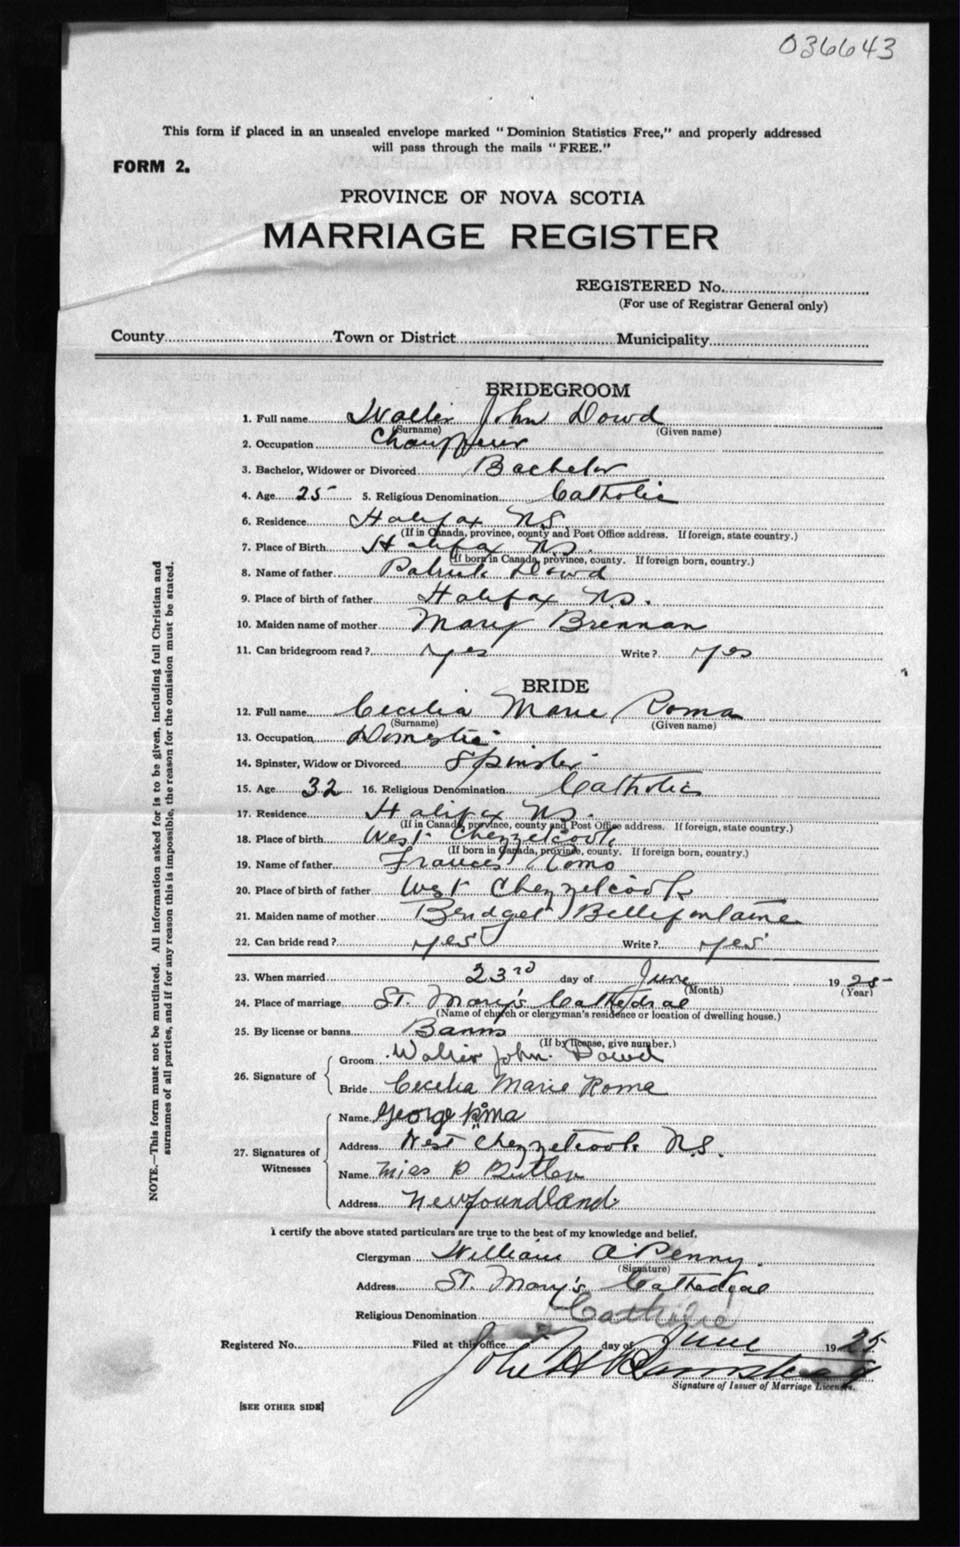 036643
This form if placed in an unsealed envelope marked "Dominion Statistics Free," and properly addressed
will pass through the mails "FREE."
FORM 2.
PROVINCE OF NOVA SCOTIA
MARRIAGE REGISTER
REGISTERED No.
(For use of Registrar General only)
County Town or District Municipality
BRIDEGROOM
1. Full name Walter John Dowd
(Surname) (Given name)
2. Occupation Chauffeur
3. Bachelor, Widower or Divorced Bachelor
4. Age 25 5. Religious Denomination Catholic
6. Residence Halifax N.S.
(If in Canada, province, county and Post Office address. If foreign, state country.)
7. Place of Birth Halifax N.S.
(If born in Canada, province, county. If foreign born, country.)
8. Name of father Patrick Dowd
9. Place of birth of father Halifax N.S.
10. Maiden name of mother Mary Brennan
11. Can bridegroom read? yes Write? yes
BRIDE
12. Full name Cecilia Marie Roma
(Surname) (Given name)
13. Occupation Domestic
14. Spinster, Widow or Divorced Spinster
15. Age 32 16. Religious Denomination Catholic
17. Residence Halifax N.S.
(If in Canada, province, county and Post Office address. If foreign, state country.)
18. Place of birth West Chezzetcook
(If born in Canada, province, county. If foreign born, country.)
19. Name of father Frances Romo
20. Place of birth of father West Chezzetcook
21. Maiden name of mother Bridget Bellefontaine
22. Can bride read? yes Write? yes
23. When married 23rd day of June 1925
(Month) (Year)
24. Place of marriage St. Mary's Cathedral
(Name of church or clergyman's residence or location of dwelling house.)
25. By license or banns Banns
(If by license, give number.)
26. Signature of Groom Walter John Dowd
Bride Cecilia Marie Roma
27. Signatures of Witnesses
Name George Roma
Address West Chezzetcook N.S.
Name Miss P Butler
Address Newfoundland
I certify the above stated particulars are true to the best of my knowledge and belief.
Clergyman William A Penny.
(Signature)
Address St. Mary's Cathedral
Religious Denomination Catholic
Registered No. Filed at this office day of June 1925
John H
Signature of Issuer of Marriage Licenses.
[SEE OTHER SIDE]
NOTE.—This form must not be mutilated. All information asked for is to be given, including full Christian and
surnames of all parties, and if for any reason this is impossible, the reason for the omission must be stated.